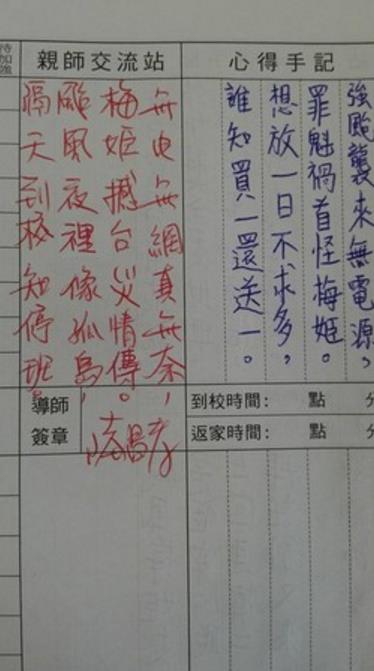 待加強
親師交流站
心得手記
強颱襲來無電源，
罪魁禍首怪梅姬。
想放一日不求多，
誰知買一還送一。
無电無網真無奈，
梅姬撼台災情傳。
颱風夜裡像孤島，
隔天到校知停班。
導師
簽章
到校時間： 點 分
返家時間： 點